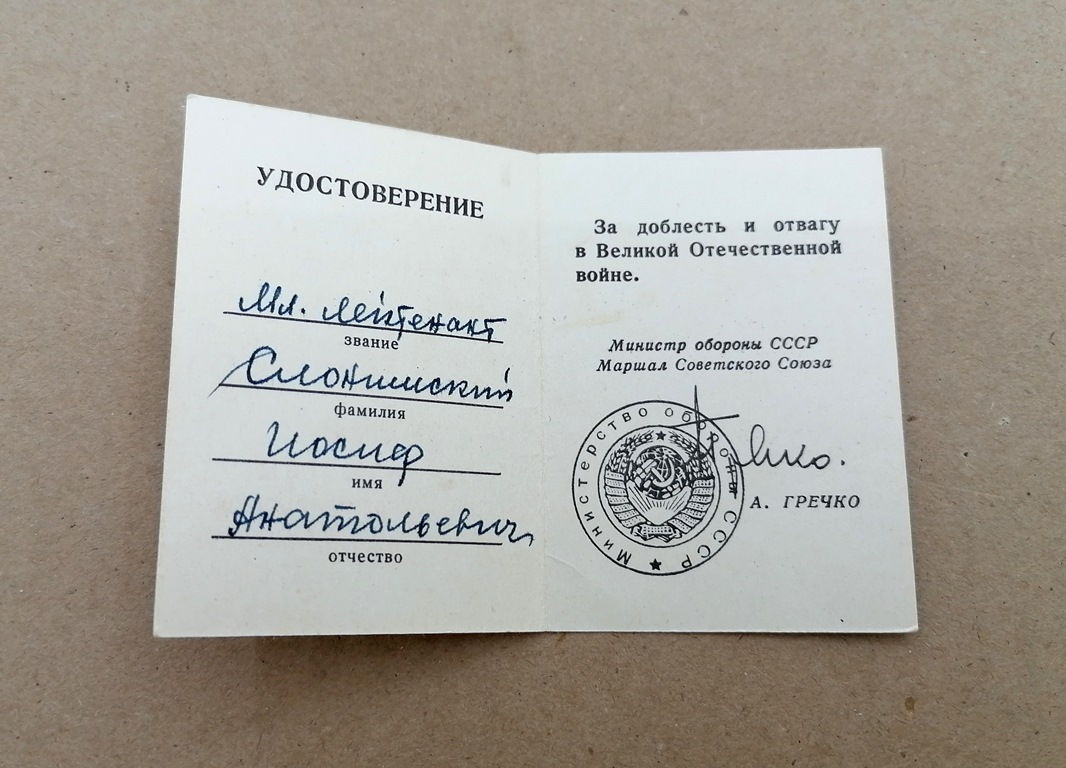 УДОСТОВЕРЕНИЕ
Мл. лейтенант
звание
Слонимский
фамилия
Иосиф
имя
Анатольевич
отчество
За доблесть и отвагу
в Великой Отечественной
войне.
Министр обороны СССР
Маршал Советского Союза
Министерство обороны СССР
А. ГРЕЧКО